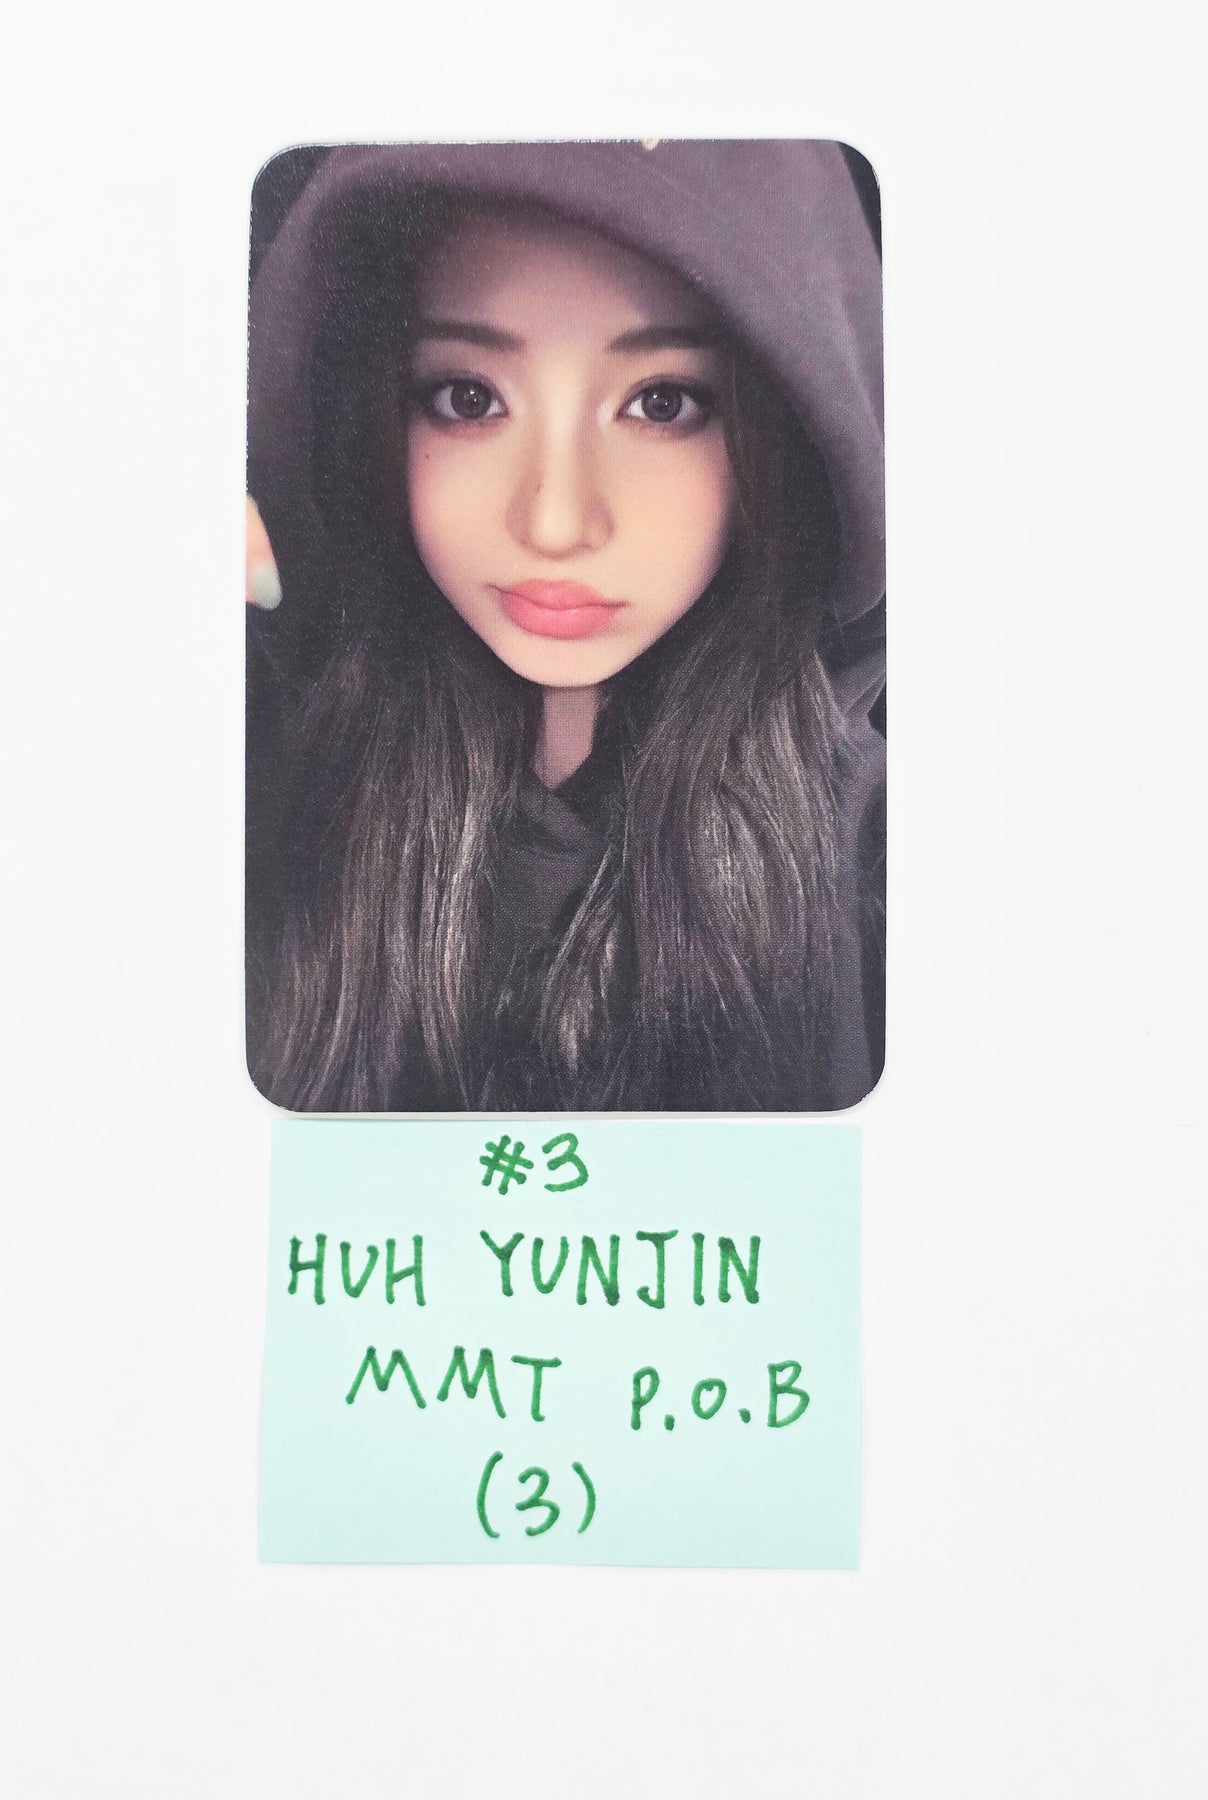 #3
HUH YUNJIN
MMT P.O.B
(3)